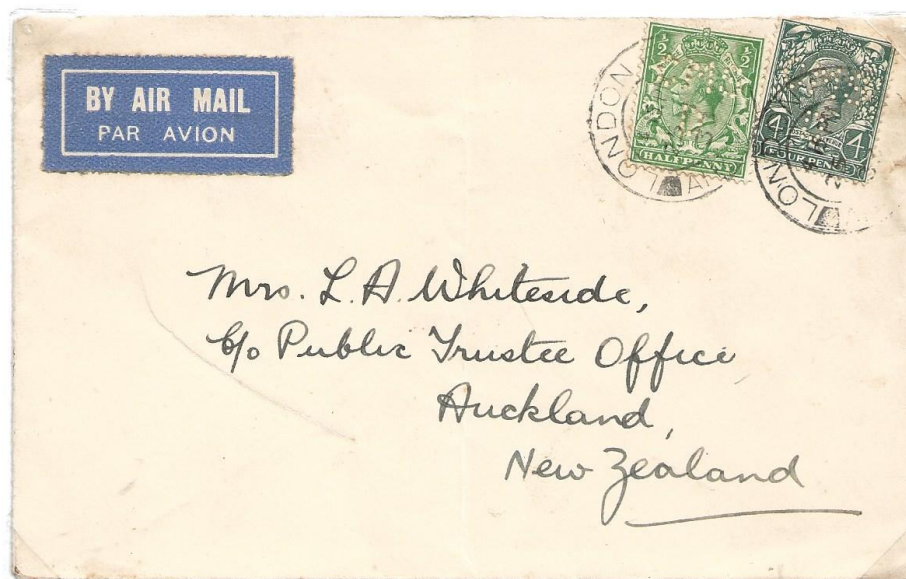 BY AIR MAIL
PAR AVION
½ ½
HALFPENNY
4 4
FOUR PENCE
LONDON
LONDON
Mrs. L. A. Whiteside,
c/o Public Trustee Office
Auckland,
New Zealand